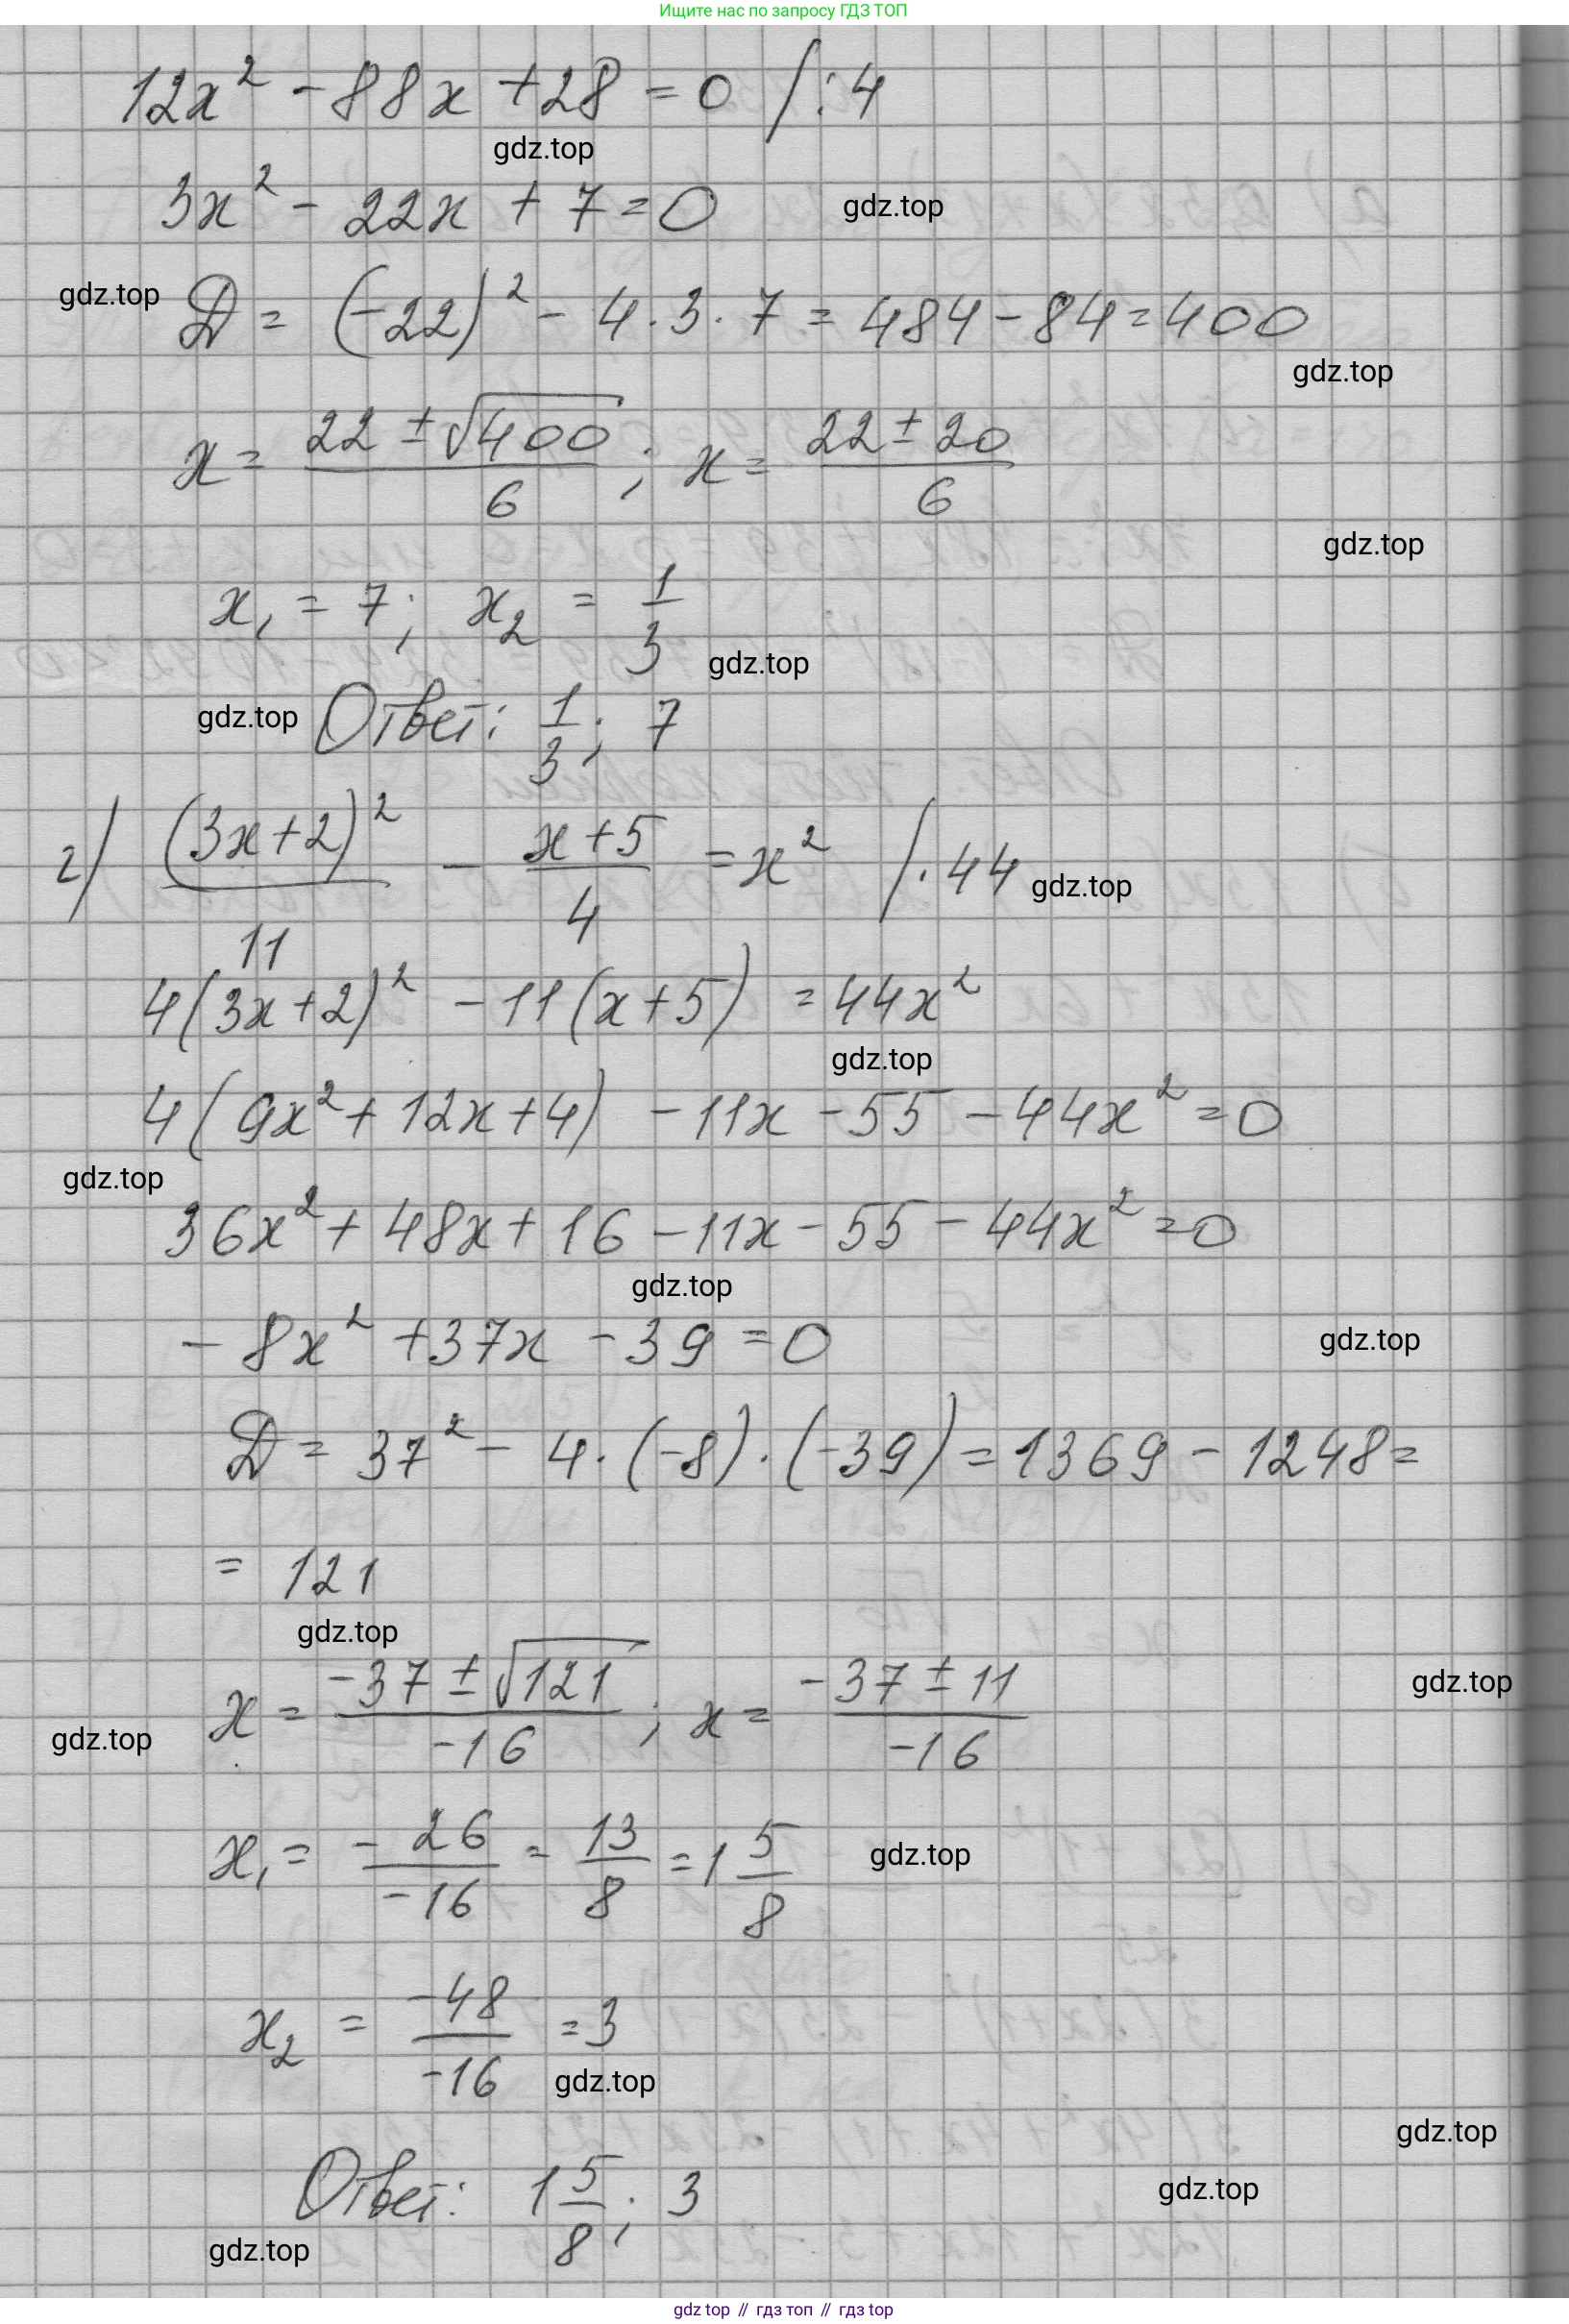 Ищите нас по запросу ГДЗ ТОП
12x² - 88x + 28 = 0 /:4
gdz.top
3x² - 22x + 7 = 0
gdz.top
gdz.top
D = (-22)² - 4·3·7 = 484 - 84 = 400
gdz.top
x = (22 ± √400)/6 ; x = (22 ± 20)/6
gdz.top
x₁ = 7; x₂ = 1/3
gdz.top
gdz.top
Ответ: 1/3; 7
г) (3x+2)²/11 - (x+5)/4 = x² /·44
gdz.top
4(3x+2)² - 11(x+5) = 44x²
gdz.top
4(9x² + 12x + 4) - 11x - 55 - 44x² = 0
gdz.top
36x² + 48x + 16 - 11x - 55 - 44x² = 0
gdz.top
- 8x² + 37x - 39 = 0
gdz.top
D = 37² - 4·(-8)·(-39) = 1369 - 1248 =
= 121
gdz.top
x = (-37 ± √121)/-16 ; x = (-37 ± 11)/-16
gdz.top
gdz.top
x₁ = -26/-16 = 13/8 = 1 5/8
gdz.top
x₂ = -48/-16 = 3
gdz.top
gdz.top
Ответ: 1 5/8; 3
gdz.top
gdz.top
gdz top // гдз топ // гдз top